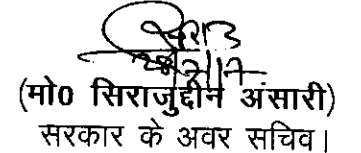 (मो0 सिराजुद्दीन अंसारी)
सरकार के अवर सचिव।